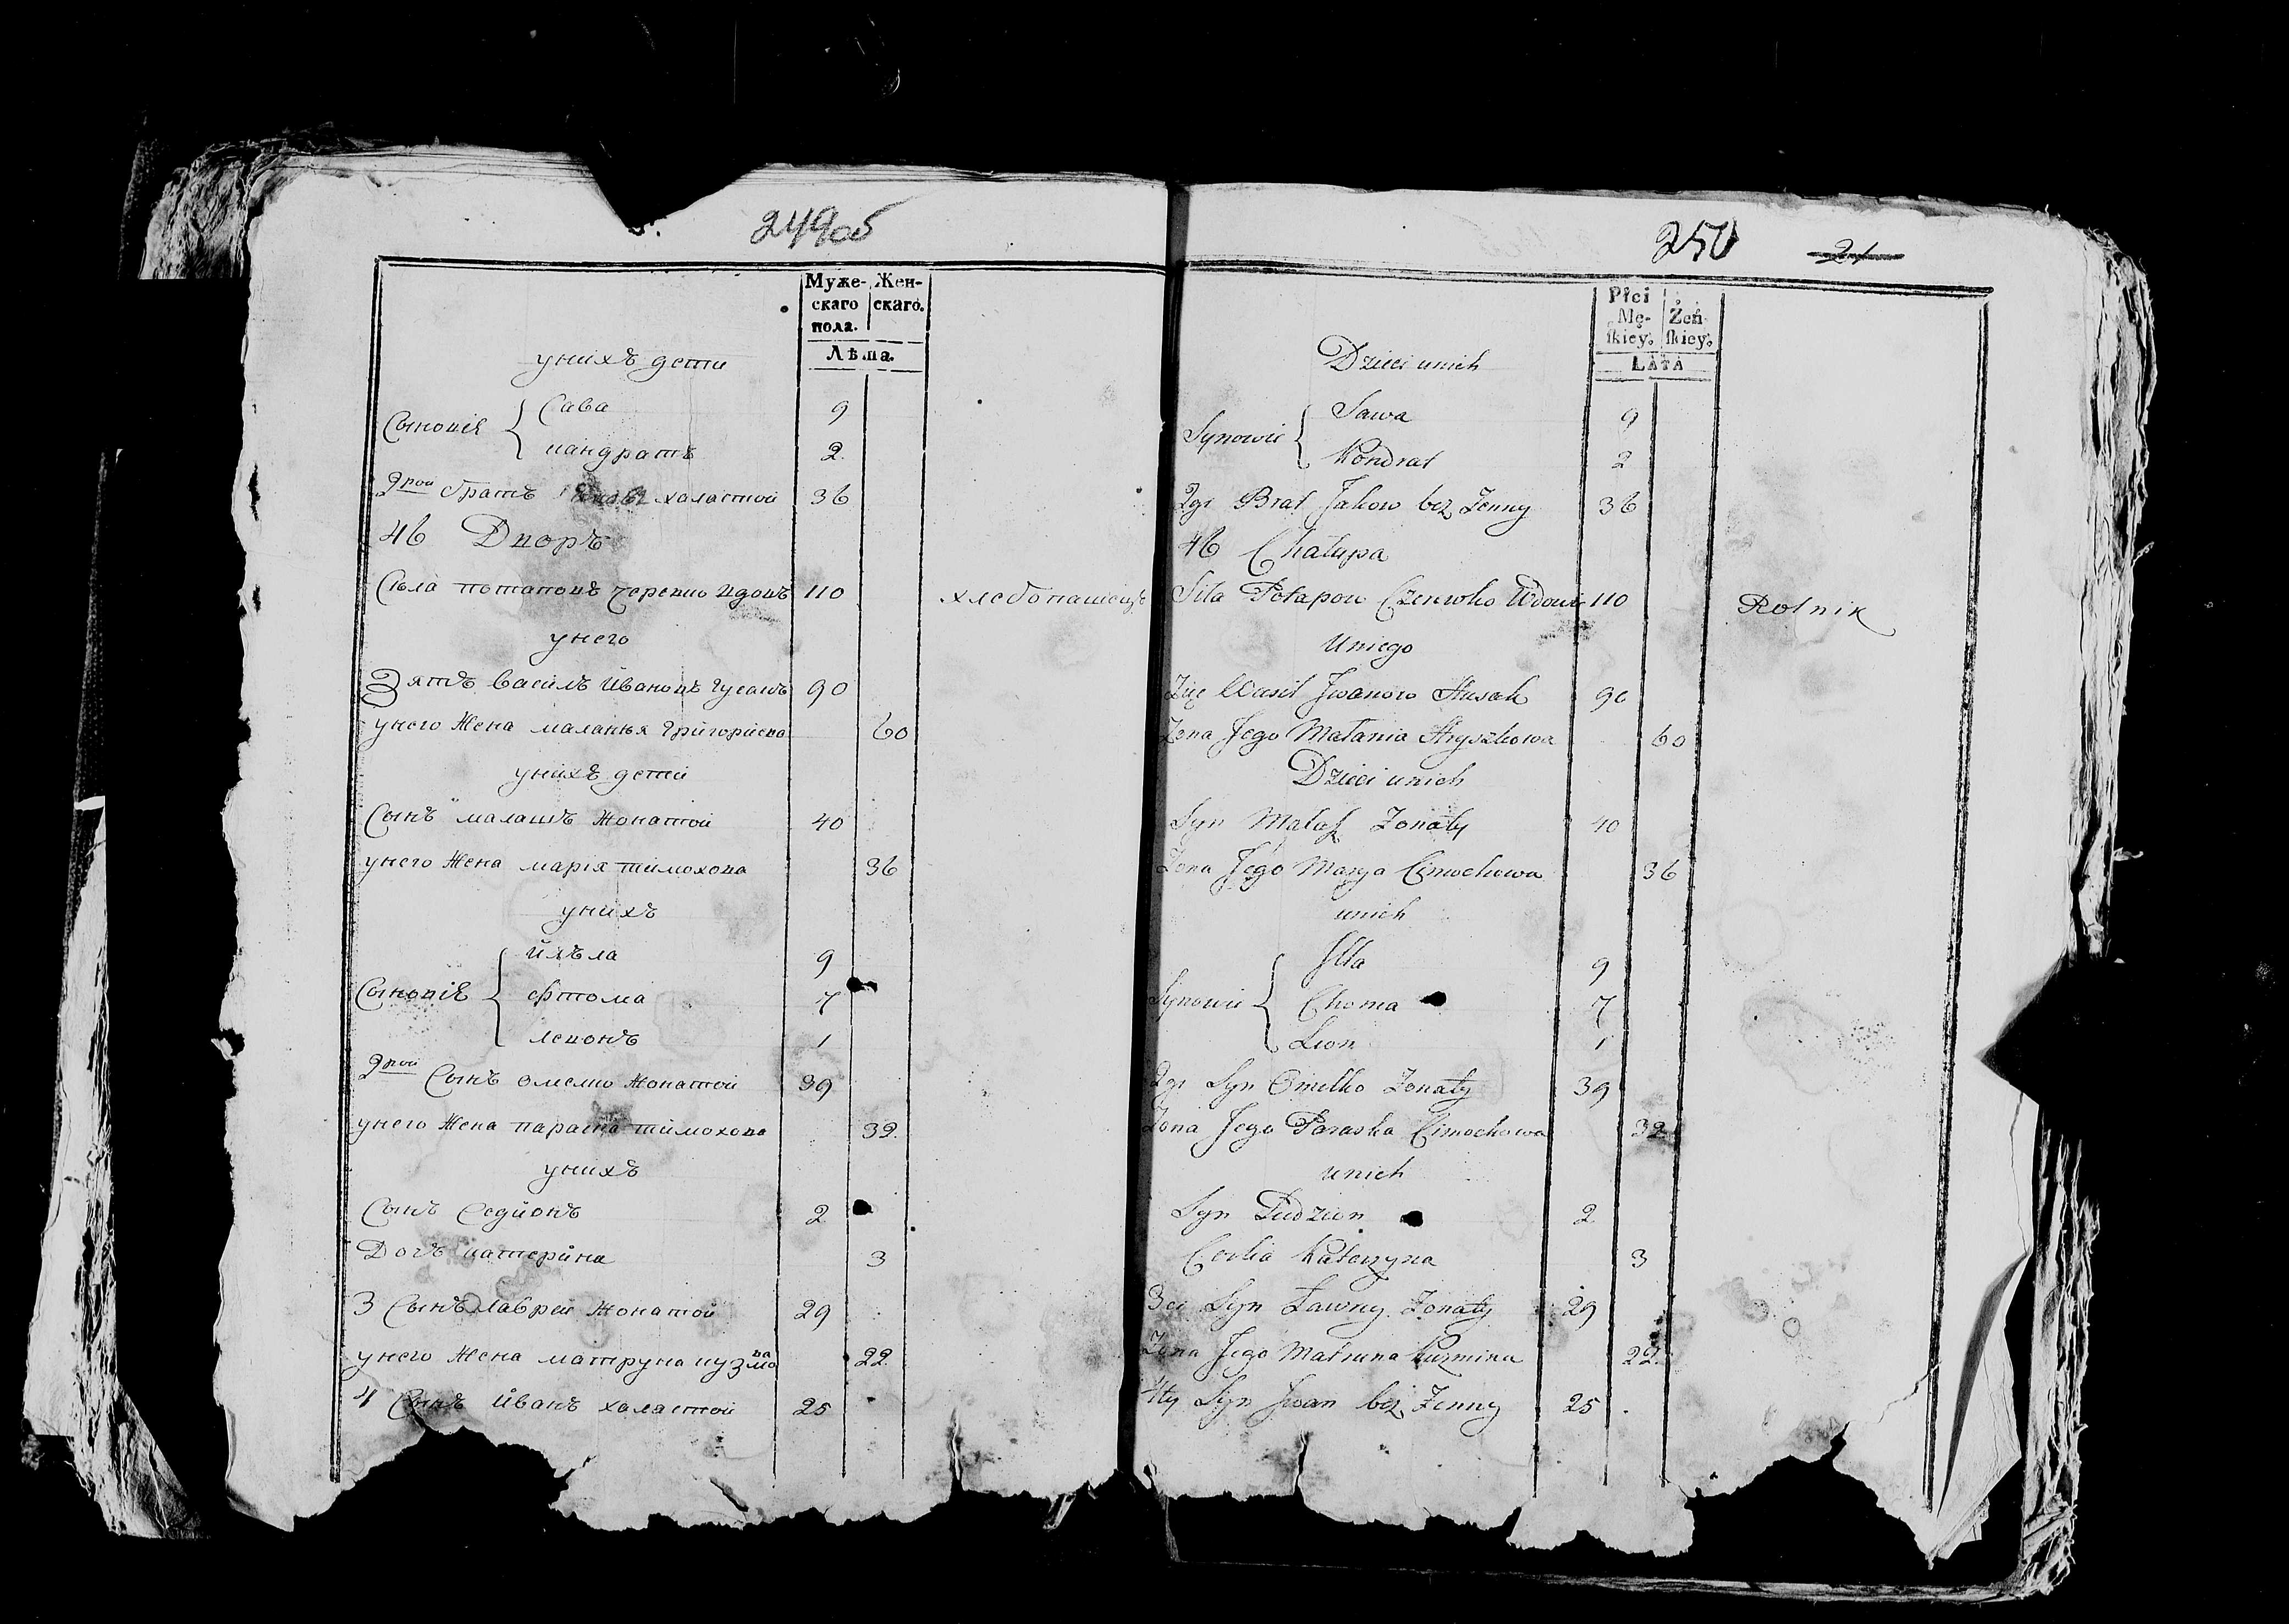 249об
Муже- Жен-
скаго скаго.
пола.
Лѣта.
унихъ дети
Сыновiя { Сава 9
кандратъ 2
2рой братъ Яковъ халастой 36
46 Дворъ
Сѣла потаповъ черевко вдовъ 110 хлебопашецъ
унего
Зятъ василъ Ивановъ Гусакъ 90
унего Жена маланья Григорйева 60
унихъ дети
Сынъ малашъ Жонатой 40
унего Жена марiя тимохова 36
унихъ
илъла 9
Сыновiя { фтома 7
левонъ 1
2рой Сынъ омелко Жонатой 39
унего Жена параска тимохова 32
унихъ
Сынъ 2
Дочъ катерйна 3
3 Сынъ лаврей Жонатой 29
унего Жена матруна кузмова 22
4 Сынъ йванъ халастой 25
250 21
Płci Żeń
Mę- skiey.
skiey.
LATA
Dzieci unich
Synowie { Sawa 9
Kondrat 2
2gi Brat Jakow bez Zenny 36
46 Chałupa
Siła Potapow Czerewko Wdowie 110 Rolnik
Uniego
Zię Wasil Jwanow Husak 90
Zona Jego Małania Hryszkowa 60
Dzieci unich
Syn Małasz Zonaty 40
Zona Jego Marya Cimochowa 36
unich
Jlla 9
Synowie { Choma 7
Lion 1
2gi Syn Omelko Zonaty 39
Zona Jego Paraska Cimochowa 32
unich
Syn 2
Corka Katerzyna 3
3ci Syn Ławrey Zonaty 29
Zona Jego Matruna Kuzmina 22
4ty Syn Jwan bez Zenny 25